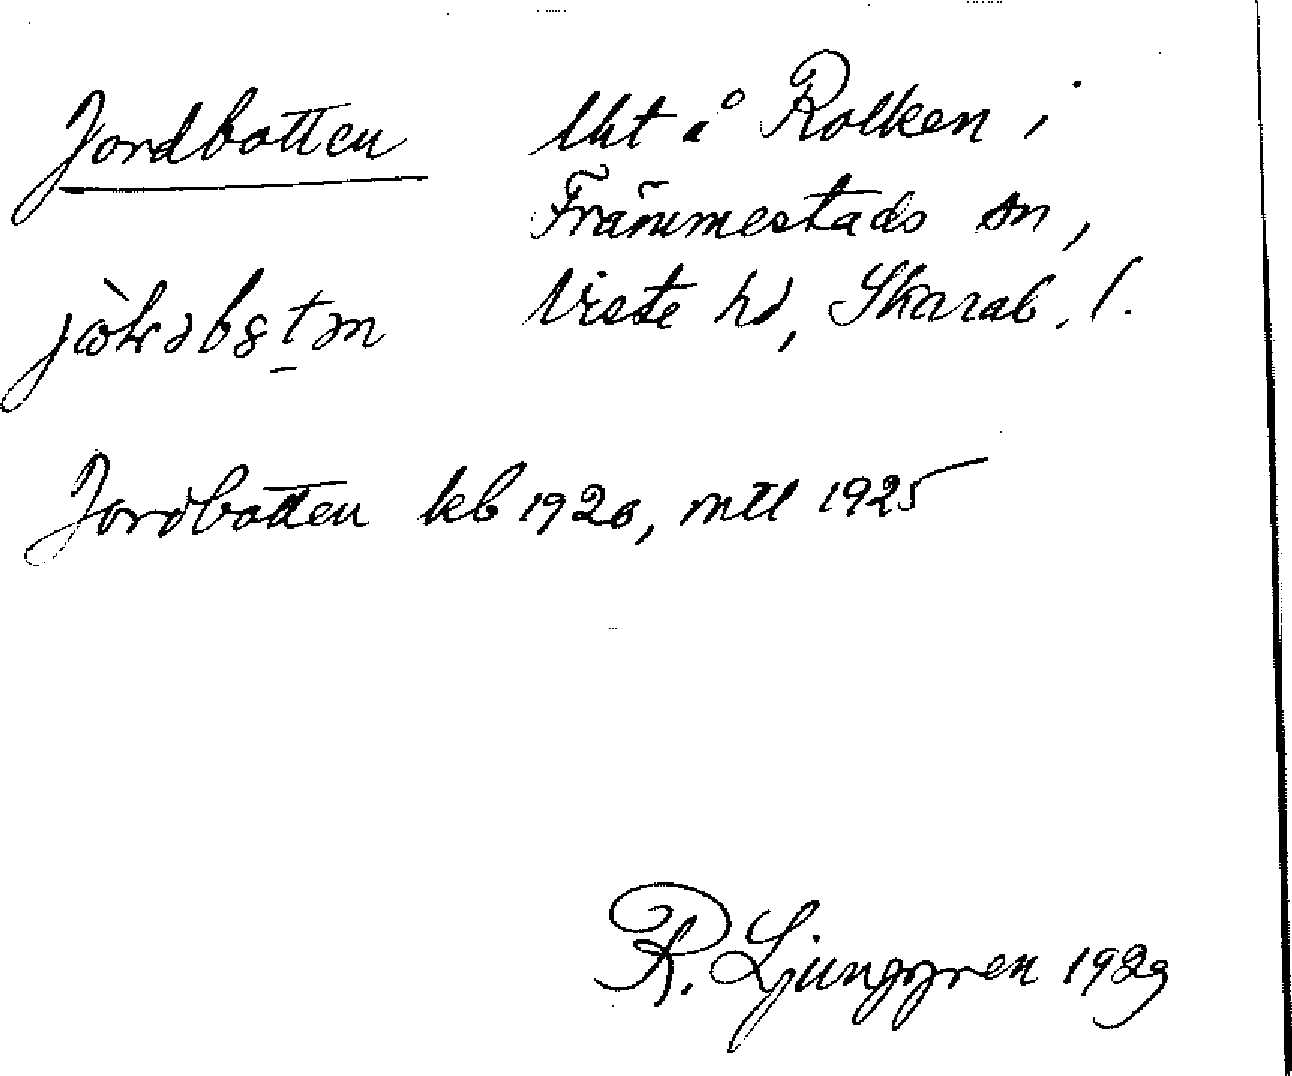 Jordbotten lht å Rolken i
Främmestads sn,
Viste hd, Skarab. l.
Jordbotten kb 1920, mtl 1925
R. Ljunggren 1929